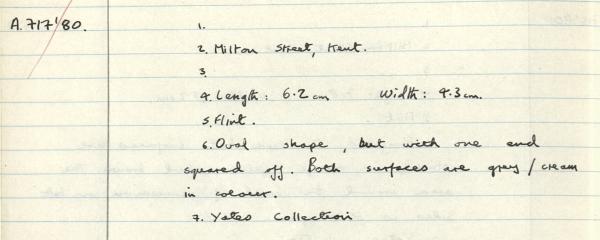 A.717'80.
1.
2. Milton Street, Kent.
3.
4. Length: 6.2cm Width: 4.3cm.
5. Flint.
6. Oval shape, but with one end
squared off. Both surfaces are grey/cream
in colour.
7. Yates Collection